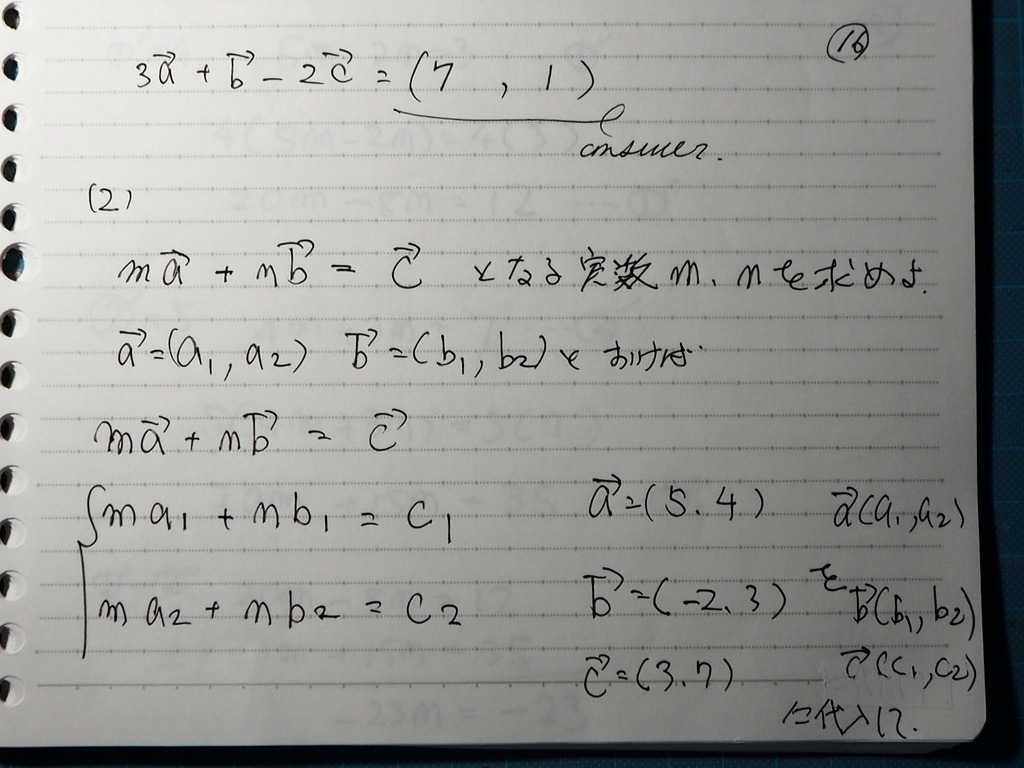 ⑯
3a⃗ + b⃗ - 2c⃗ = (7 , 1)
answer.
(2)
ma⃗ + nb⃗ = c⃗ となる実数 m、nを求めよ.
a⃗=(a₁, a₂) b⃗=(b₁, b₂)とおけば
ma⃗ + nb⃗ = c⃗
{ma₁ + nb₁ = c₁ a⃗=(5.4) a⃗(a₁,a₂)
ma₂ + nb₂ = c₂ b⃗=(-2.3) を b⃗(b₁, b₂)
c⃗=(3.7) c⃗(c₁,c₂)
に代入して.